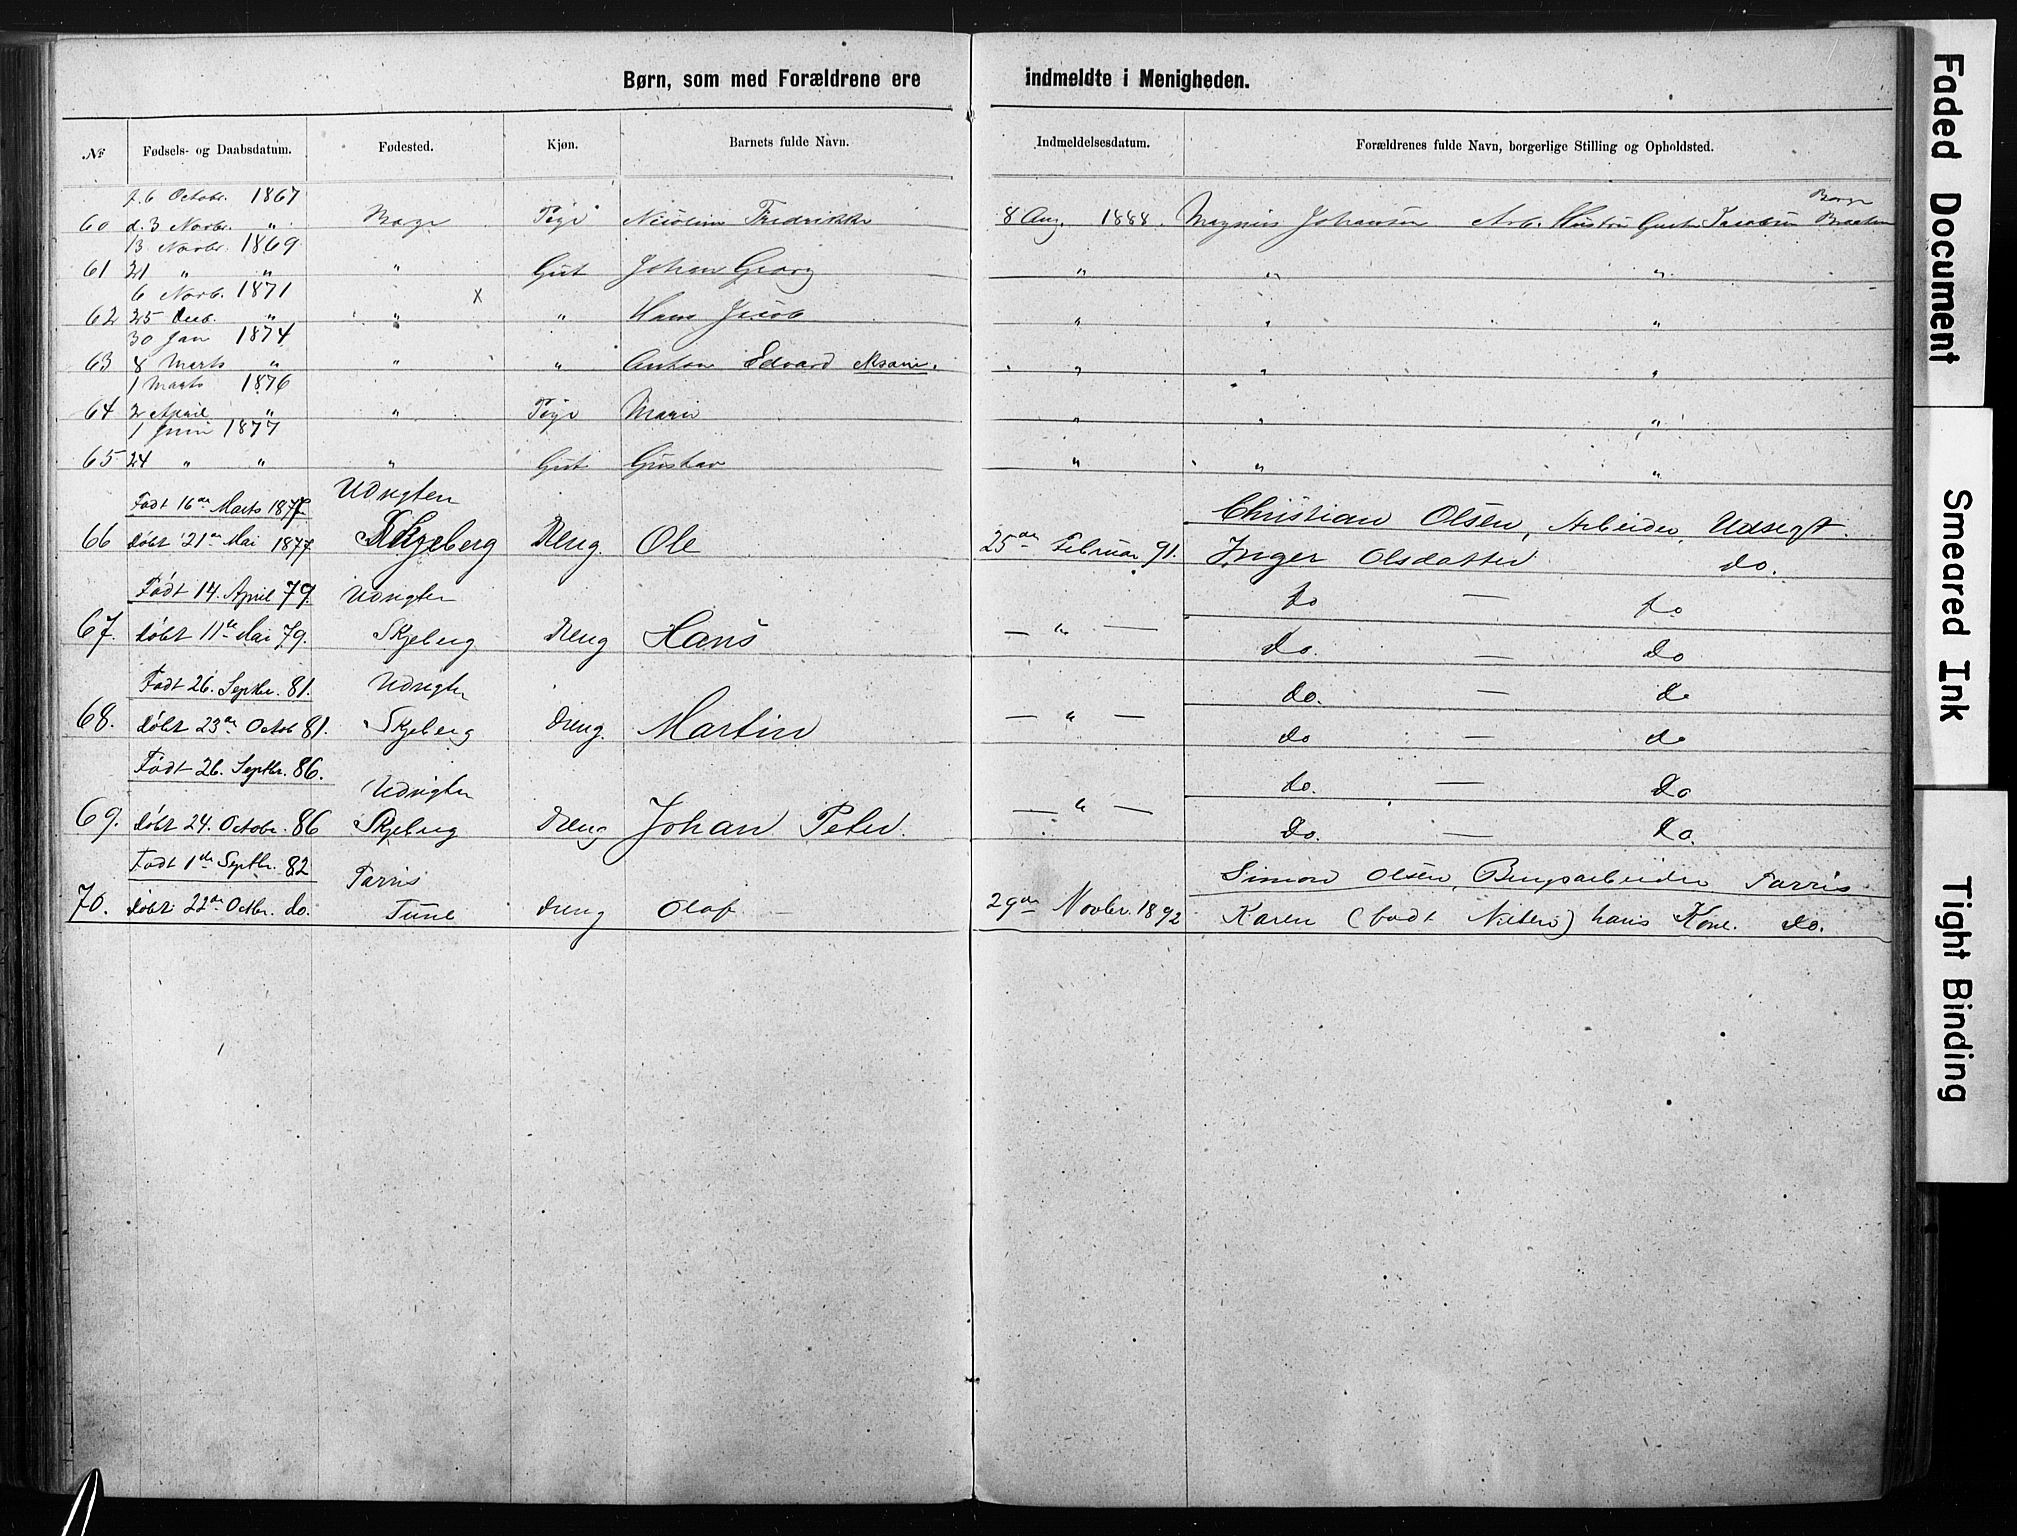 Børn, som med Forældrene ere indmeldte i Menigheden.
№ Fødsels- og Daabsdatum. Fødested. Kjøn. Barnets fulde Navn. Indmeldelsesdatum. Forældrenes fulde Navn, borgerlige Stilling og Opholdsted.
f. 6 Octobr. 1867 Borge
60 d. 3 Novbr. " Borge Pige Nicoline Fredrikke 8 Aug. 1888. Magnus Johansen Arb. Hustru Jacobsen Braaten
13 Novbr. 1869
61 21 " " " Gut Johan Georg " " "
6 Novb. 1871 x
62 25 Deb. " " " Hans Jacob " " "
30 Jan 1874
63 8 Marts " " " Anton Edvard " " "
1 Marts 1876
64 2 April " " Pige Marie " " "
1 Juni 1877
65 24 " " " Gut Gustav " " "
Født 16de Marts 1877. Udsigten Christian Olsen, Arbeider, Udsigt.
66 døbt 21de Mai 1877 Skjeberg Dreng Ole 25de Februar 91. Inger Olsdatter do.
Født 14. April 79. Udsigten do — do
67. døbt 11te Mai 79. Skjeberg Dreng Hans — " — do. — do
Født 26. Septbr. 81. Udsigten do. — do
68. døbt 23de Octob 81. Skjeberg dreng. Martin — " — do — do
Født 26. Septbr. 86. Udsigten do. — do
69. døbt 24. Octobr. 86 Skjeberg dreng Johan Peter. — " — do. — do.
Født 1ste Septbr. 82 Farris Simon Olsen, Brugsarbeider Farris
70. døbt 22de Octbr. do. Tune dreng Olaf — 29de Novbr. 1892 Karen (født ) hans Kone. do.
Faded Document
Smeared Ink
Tight Binding